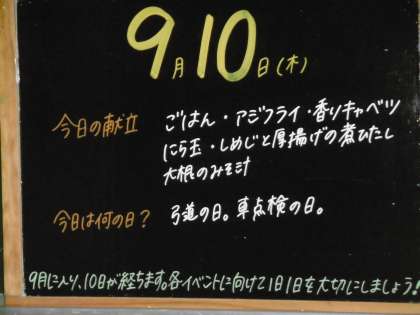 9月10日(木)
今日の献立 ごはん・アジフライ・香りキャベツ
にら玉・しめじと厚揚げの煮びたし
大根のみそ汁
今日は何の日? 弓道の日。車点検の日。
9月に入り、10日が経ちます。各イベントに向けて1日1日を大切にしましょう!